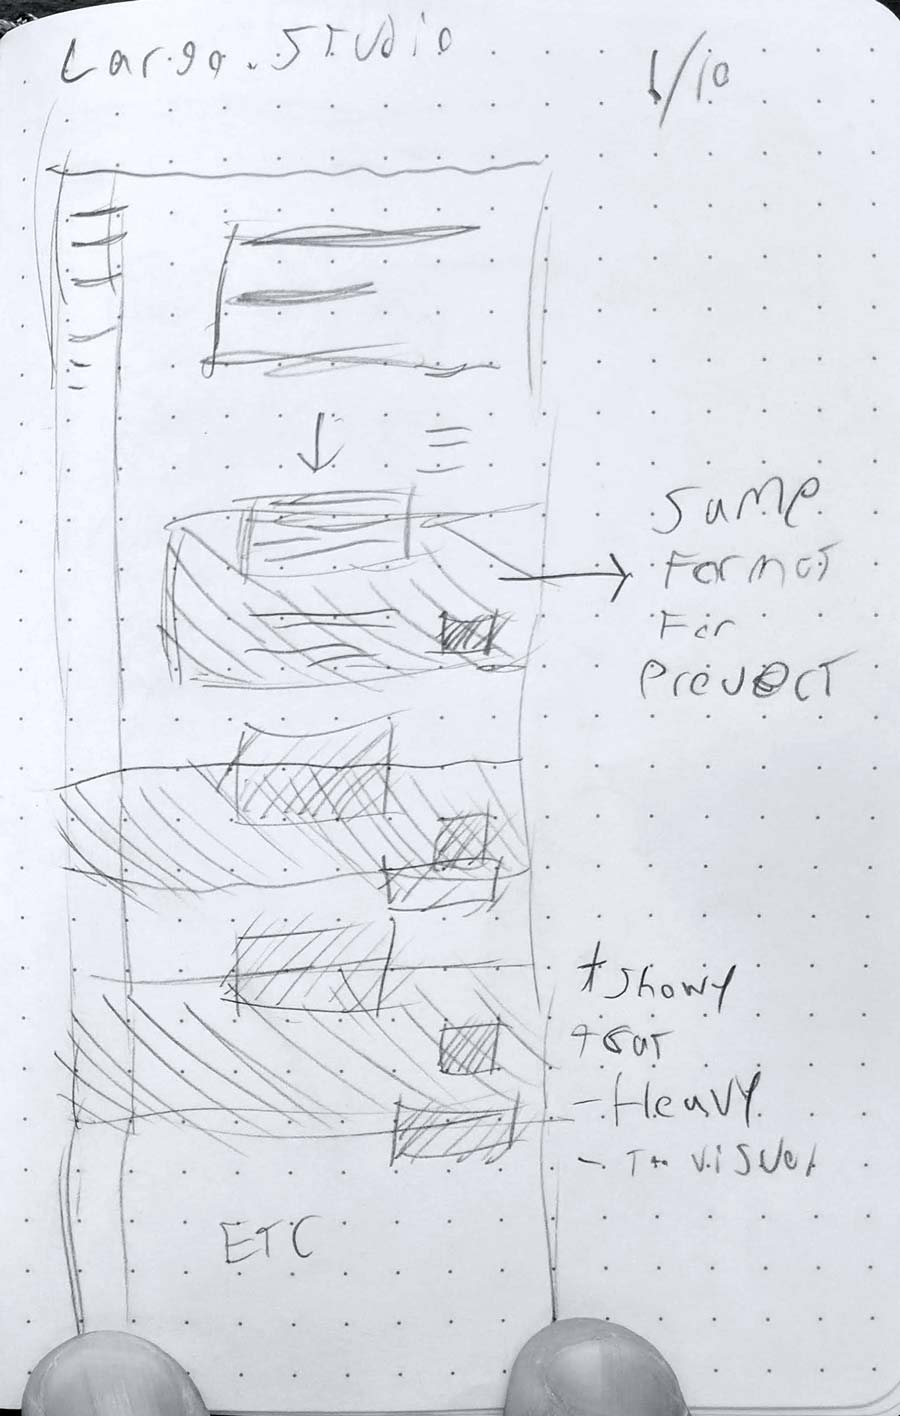 Largo.Studio
1/10
Same
Format
For
Provect
+ Showy
+ Gut
- Heavy
- Too visual
ETC